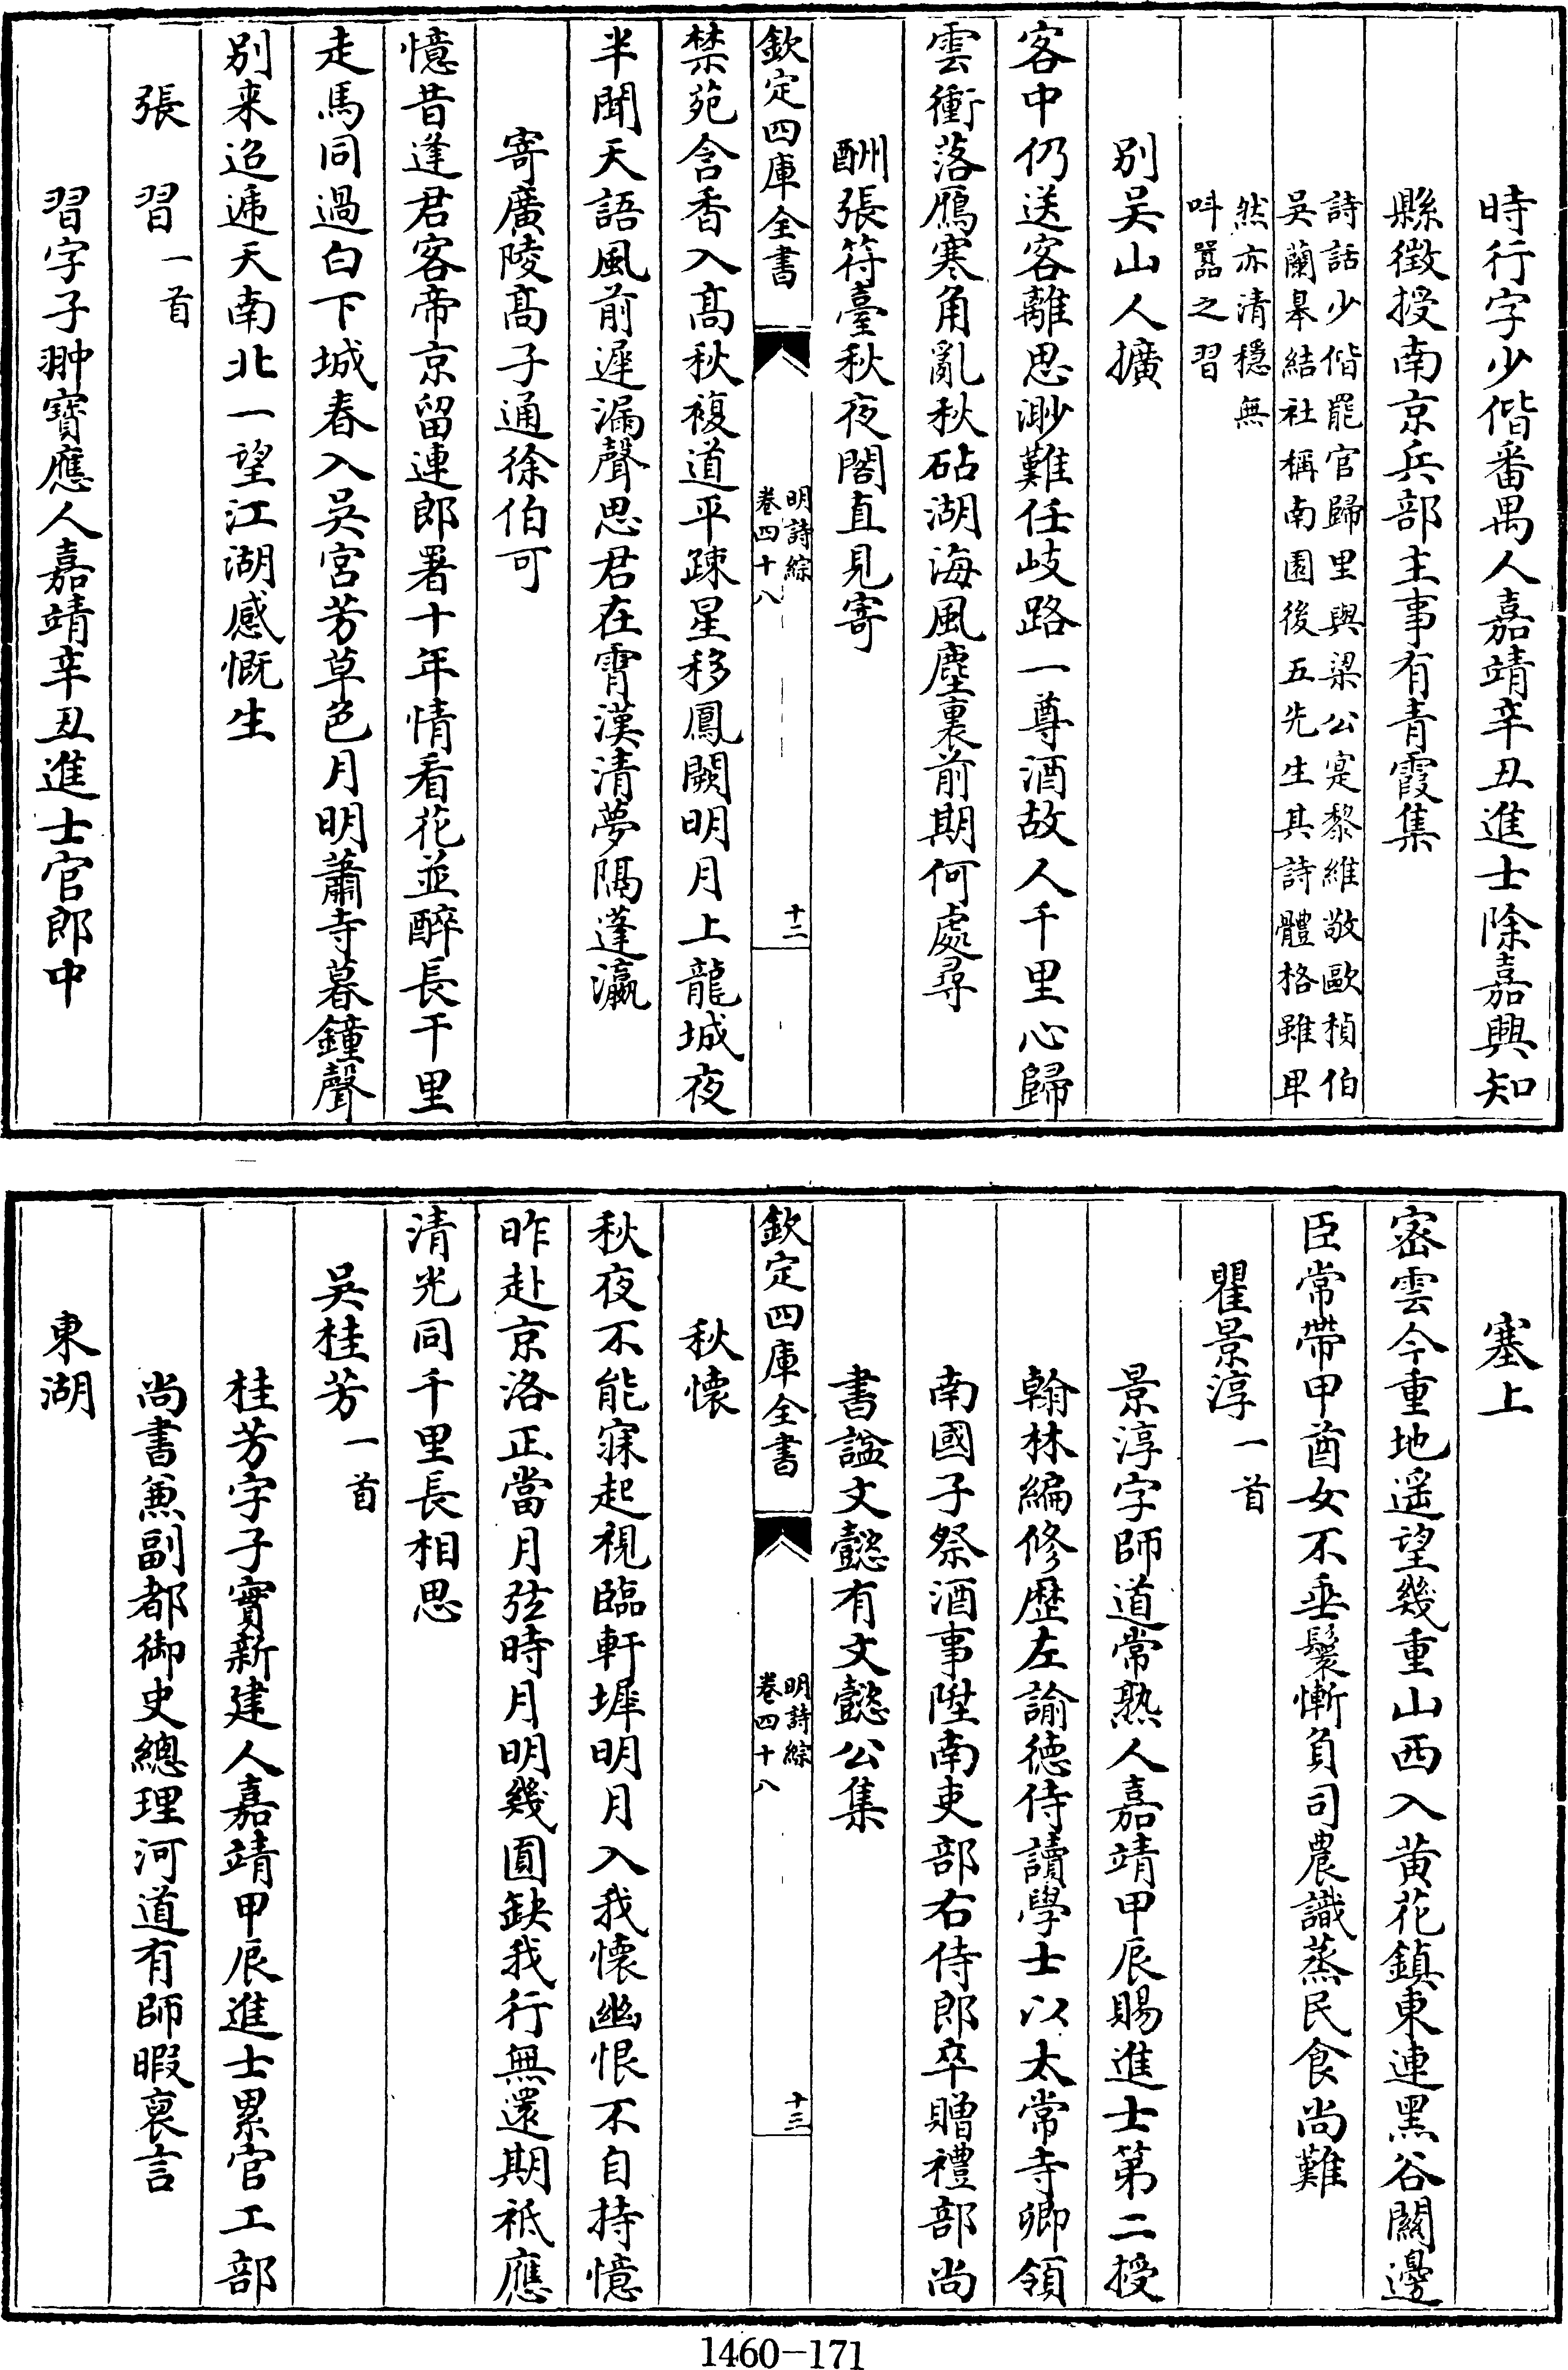 時行字少偕番禺人嘉靖辛丑進士除嘉興知
縣徵授南京兵部主事有青霞集
詩話少偕罷官歸里與梁公寔黎維敬歐楨伯
吳蘭臯結社稱南園後五先生其詩體格雖卑
然亦清穩無
呌囂之習
别吴山人擴
客中仍送客離思渺難任岐路一尊酒故人千里心歸
雲衝落鴈寒角亂秋砧湖海風塵裏前期何處尋
酬張符臺秋夜閣直見寄
欽定四庫全書
明詩綜
卷四十八
十二
禁苑含香入髙秋複道平疎星移鳳闕明月上龍城夜
半聞天語風前遲漏聲思君在霄漢清夢隔蓬瀛
寄廣陵髙子通徐伯可
憶昔逢君客帝京留連郎署十年情看花並醉長干里
走馬同過白下城春入吳宫芳草色月明蕭寺暮鐘聲
别来迢遞天南北一望江湖感慨生
張習一首
習字子翀寳應人嘉靖辛丑進士官郎中
塞上
密雲今重地遥望幾重山西入黄花鎮東連黑谷闗邊
臣常帶甲酋女不垂鬟慚負司農識蒸民食尚難
瞿景淳一首
景淳字師道常熟人嘉靖甲辰賜進士第二授
翰林編修歴左諭徳侍讀學士以太常寺卿領
南國子祭酒事陞南吏部右侍郎卒贈禮部尚
書諡文懿有文懿公集
欽定四庫全書
明詩綜
卷四十八
十三
秋懷
秋夜不能寐起視臨軒墀明月入我懷幽恨不自持憶
昨赴京洛正當月弦時月明幾圓缺我行無還期祗應
清光同千里長相思
吳桂芳一首
桂芳字子實新建人嘉靖甲辰進士累官工部
尚書兼副都御史總理河道有師暇裒言
東湖
1460-171